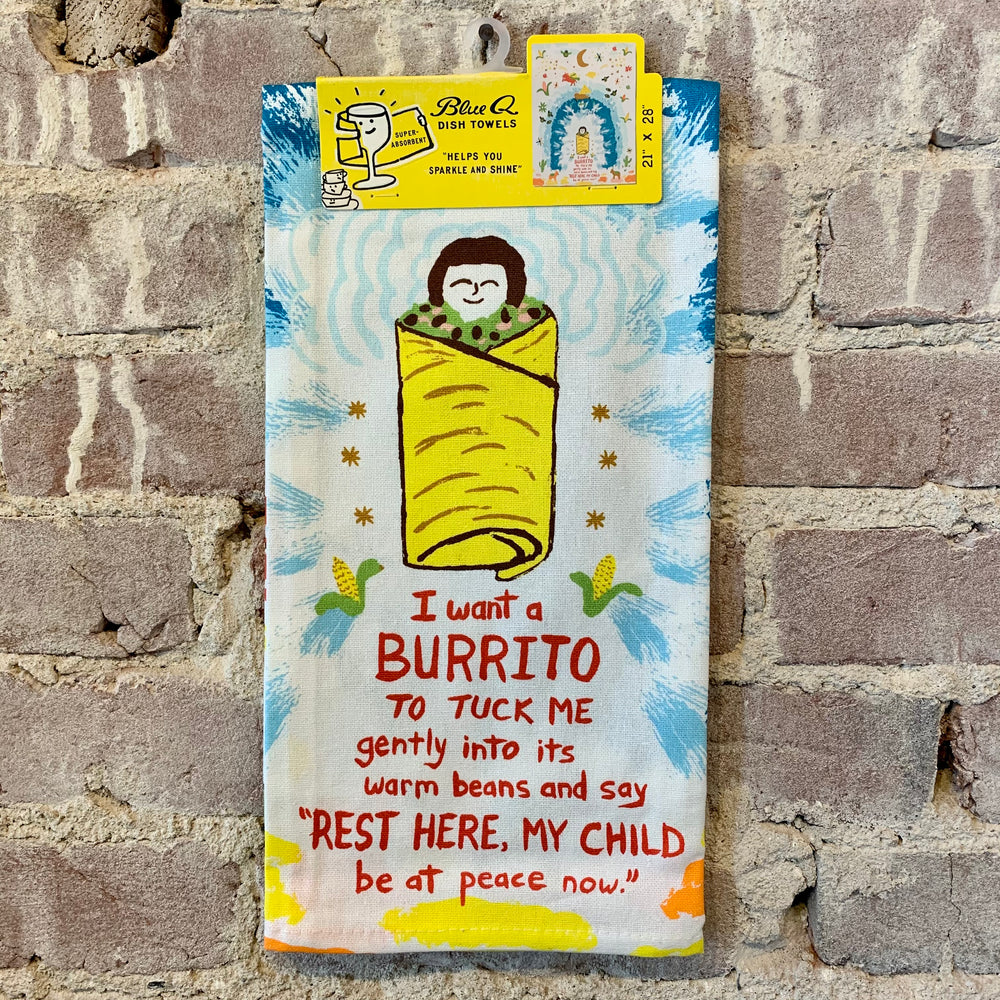 Blue Q
DISH TOWELS
SUPER-
ABSORBENT
"HELPS YOU
SPARKLE AND SHINE"
21" X 28"
I want a
BURRITO
TO TUCK ME
gently into its
warm beans and say
"REST HERE, MY CHILD
be at peace now."
I want a
BURRITO
REST HERE, MY CHILD